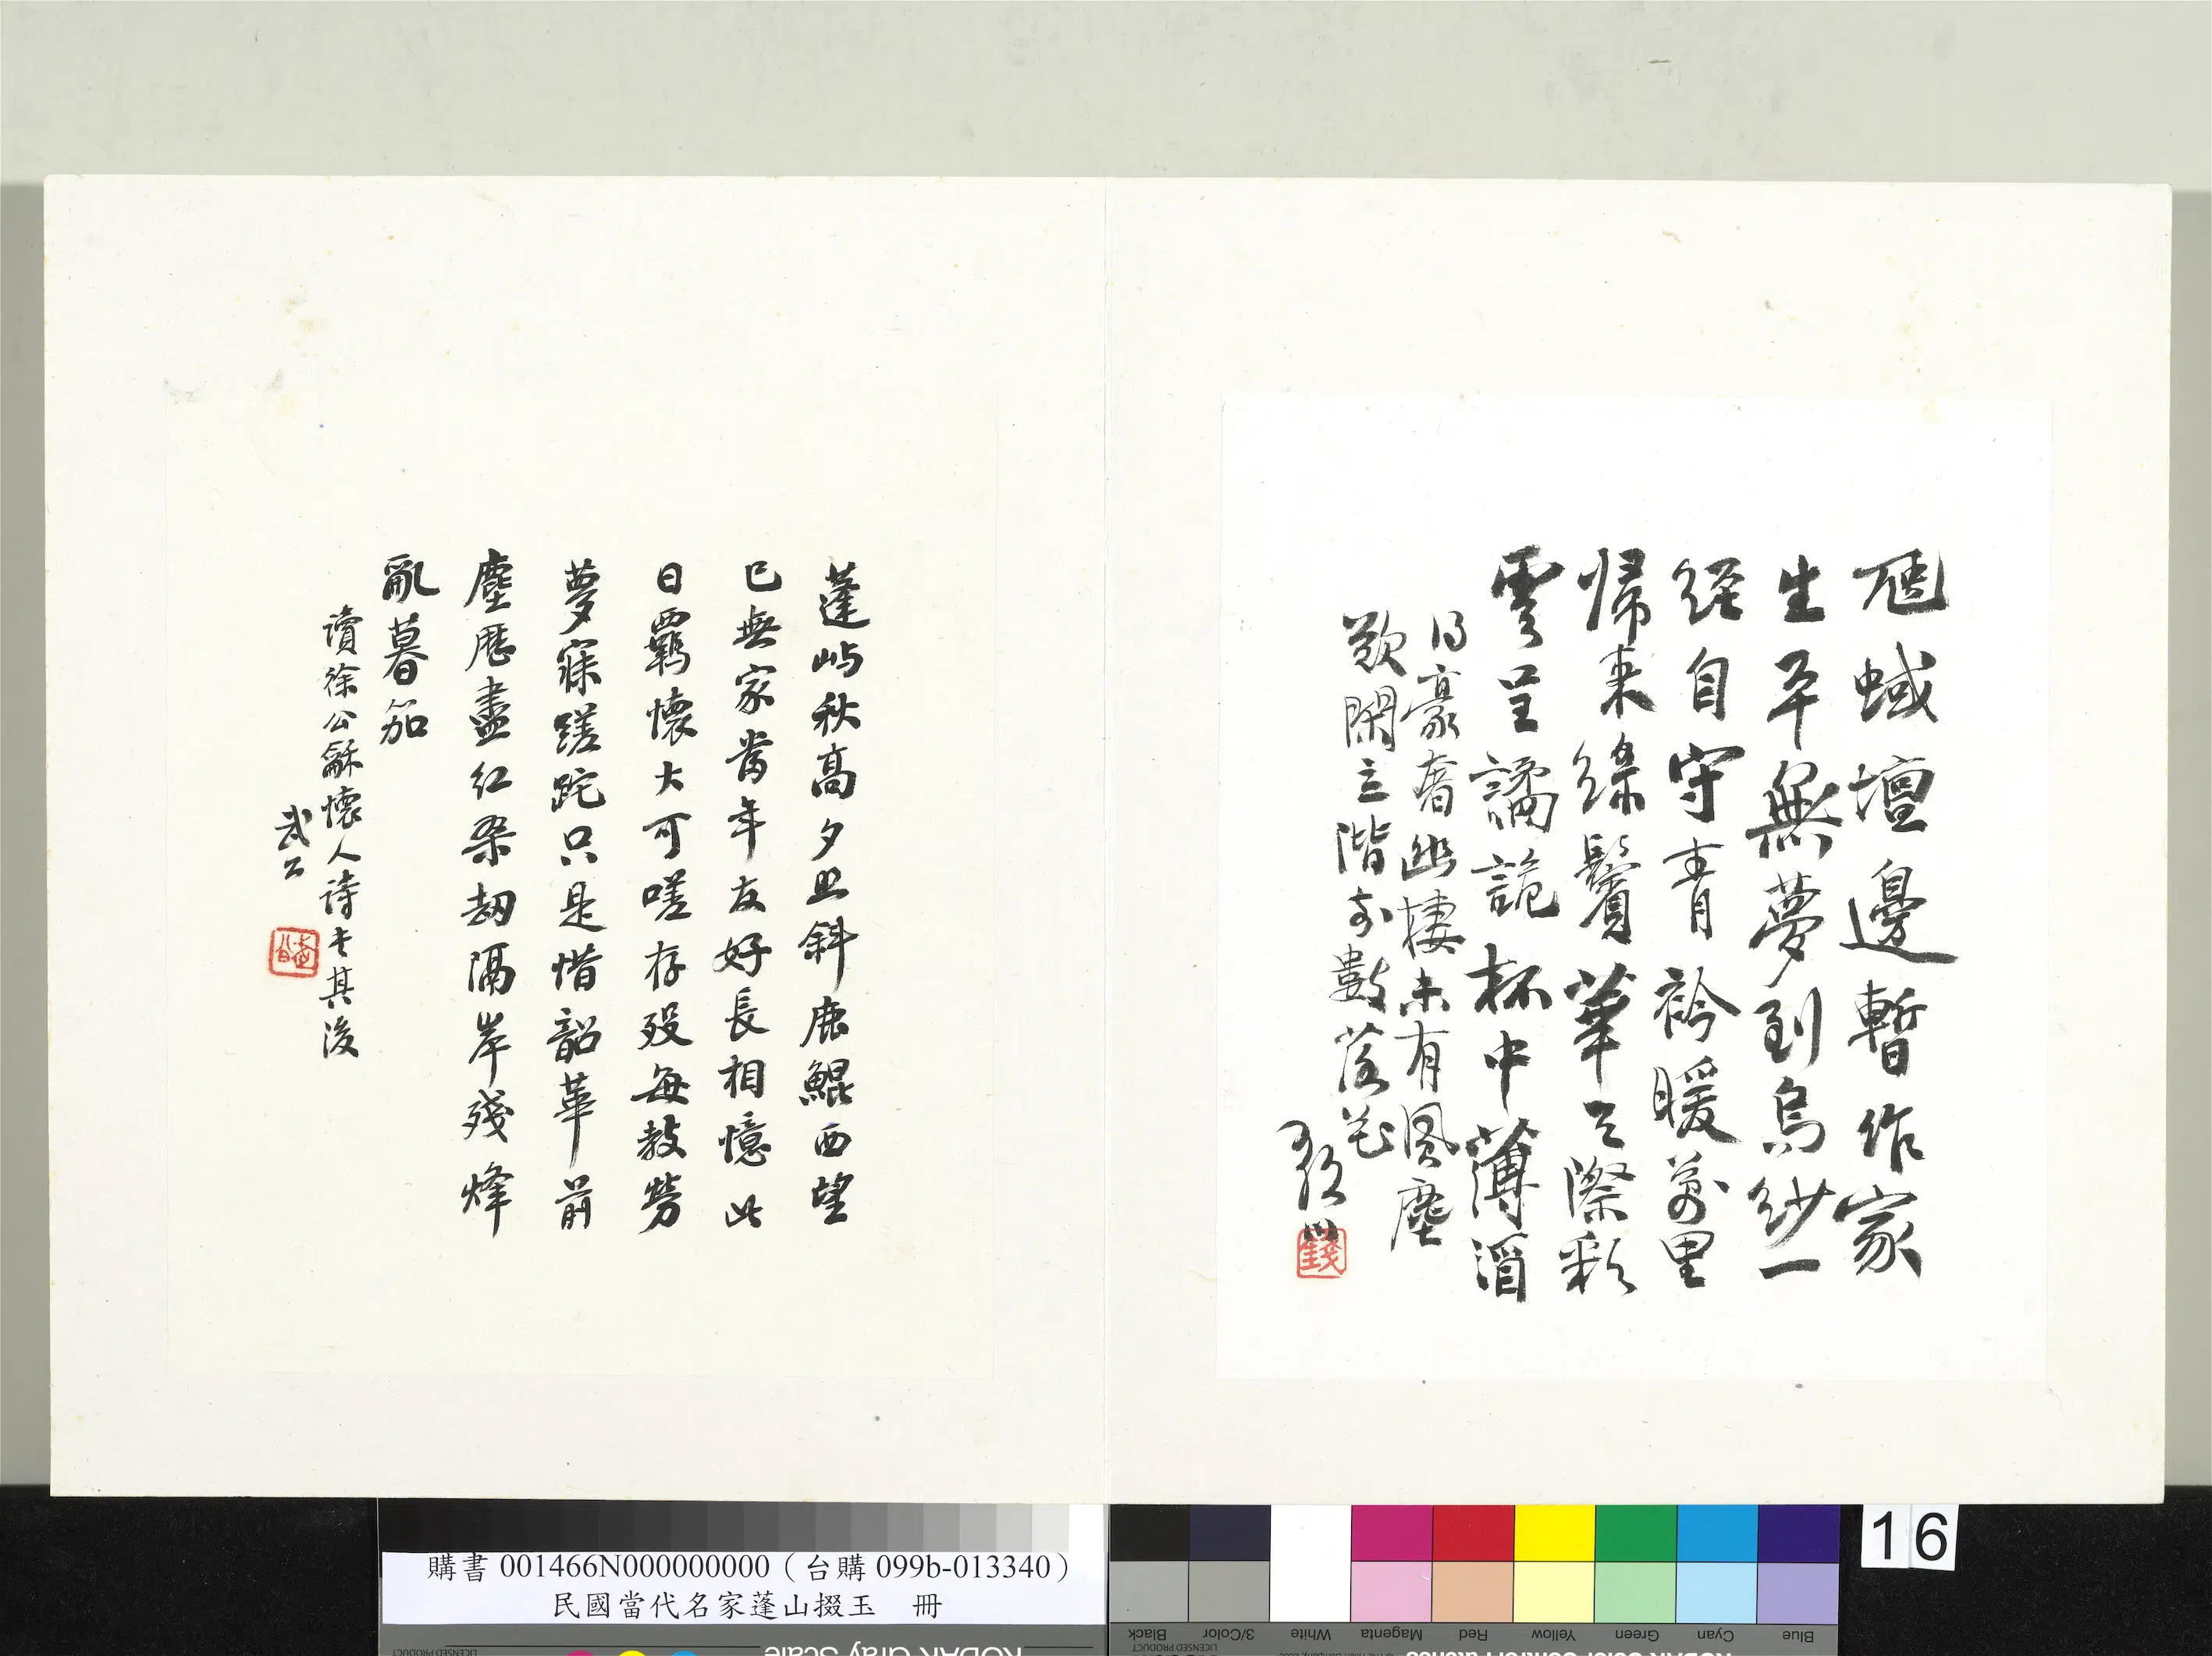 虺蜮壇邊暫作家
生平無夢到烏紗一
經自守青衿暖萬里
帰来絲鬢華天際彩
雲呈譎詭杯中薄酒
得豪奢幽棲未有風塵
歎閑立階前數落花
蓬嶼秋高夕照斜鹿鯤西望
已無家當年友好長相憶此
日羈懷大可嗟存歿每教勞
夢寐蹉跎只是惜韶華前
塵歷盡紅桑劫隔岸殘烽
亂暮笳
讀徐公龢懷人詩書其後
武公
購書 001466N000000000（台購 099b-013340）
民國當代名家蓬山掇玉 冊
16
Black
3/Color
White
Magenta
Red
Yellow
Green
Cyan
Blue
LICENSED PRODUCT
KODAK Gray Scale
LICENSED PRODUCT